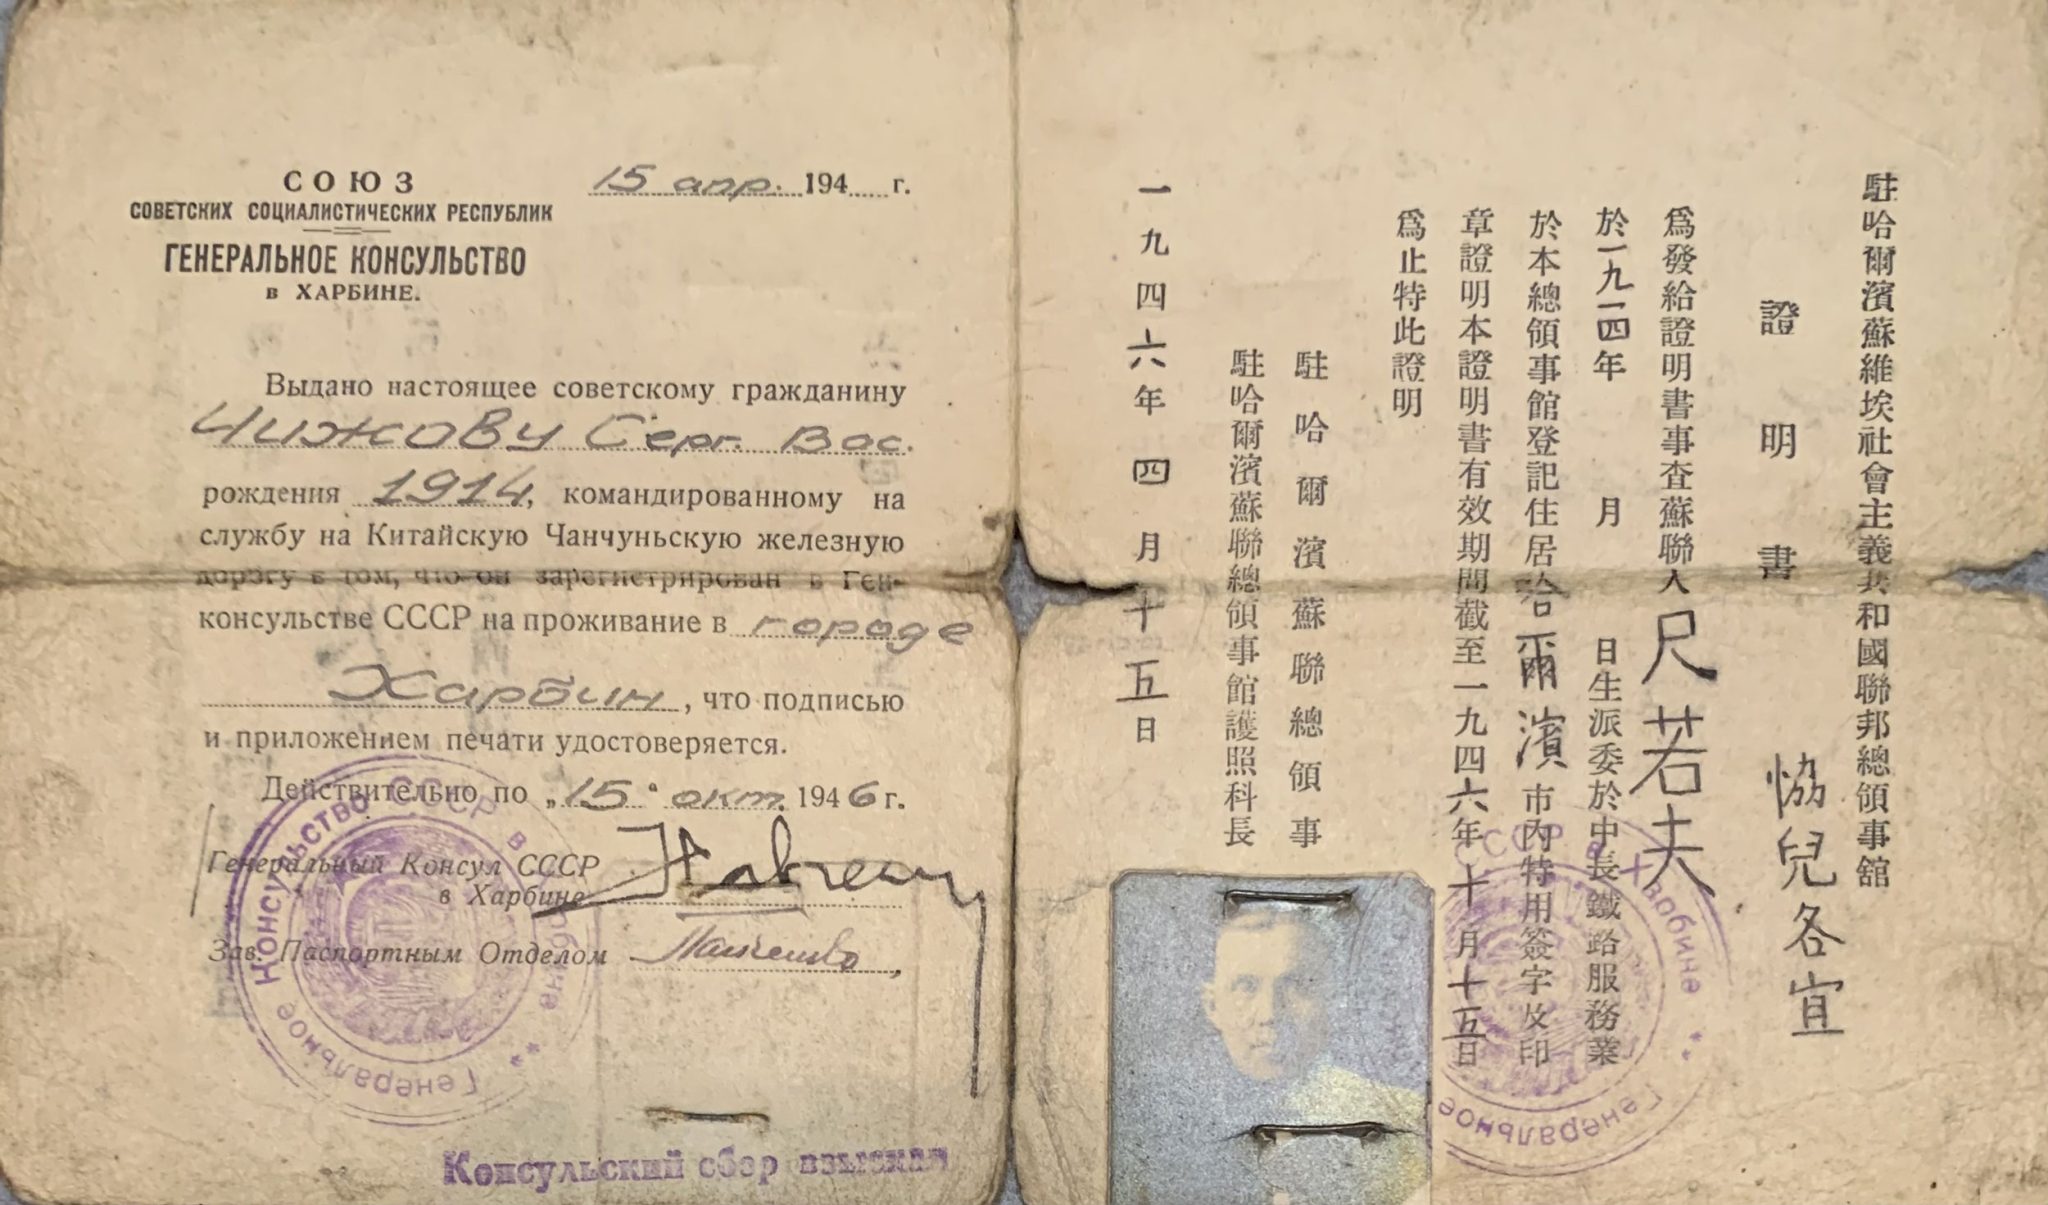 СОЮЗ
СОВЕТСКИХ СОЦИАЛИСТИЧЕСКИХ РЕСПУБЛИК
ГЕНЕРАЛЬНОЕ КОНСУЛЬСТВО
в ХАРБИНЕ.
15 апр. 194 г.
Выдано настоящее советскому гражданину
Чижову Серг. Вас.
рождения 1914, командированному на
службу на Китайскую Чанчуньскую железную
дорогу в том, что он зарегистрирован в Ген-
консульстве СССР на проживание в городе
Харбин, что подписью
и приложением печати удостоверяется.
Действительно по „15" окт. 1946 г.
Генеральный Консул СССР
в Харбине
Зав. Паспортным Отделом
Генеральное Консульство СССР в Харбине
Консульский сбор взыскан
駐哈爾濱蘇維埃社會主義共和國聯邦總領事舘
證明書
協兒各宜
爲發給證明書事查蘇聯人尺若夫
於一九一四年 月 日生派委於中長鐵路服務業
於本總領事館登記住居哈爾濱市內特用簽字及印
章證明本證明書有效期間截至一九四六年十月十五日
爲止特此證明
駐哈爾濱蘇聯總領事
駐哈爾濱蘇聯總領事館護照科長
一九四六年四月十五日
Генеральное СССР в Харбине